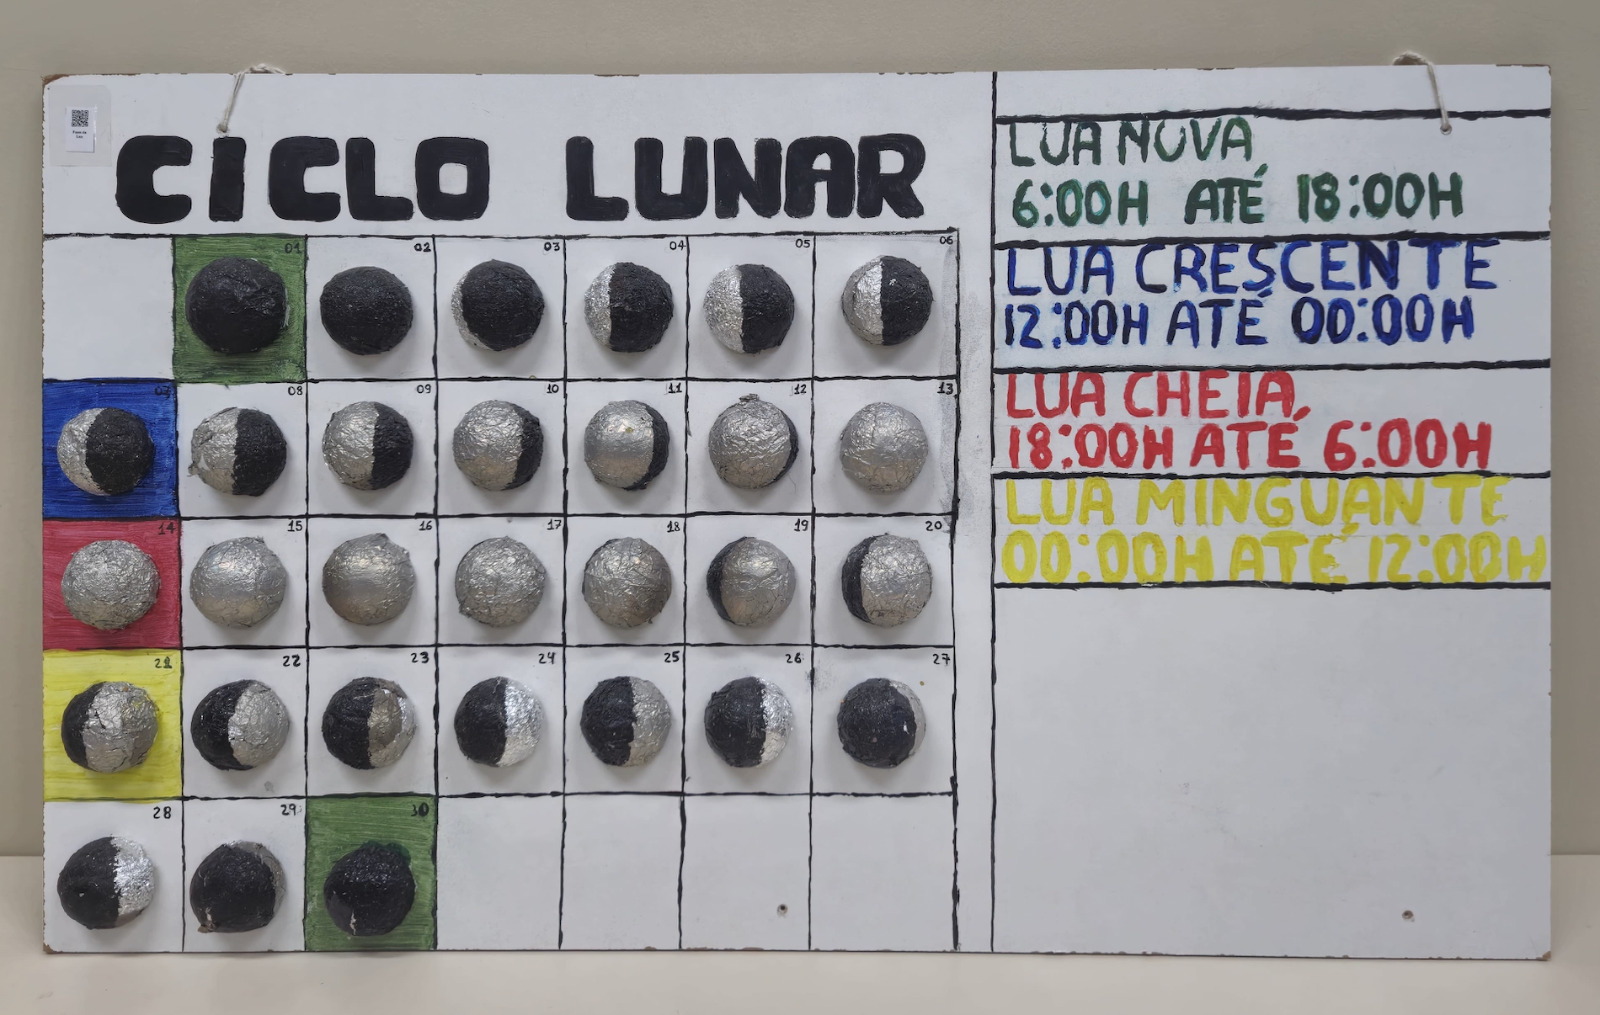 CICLO LUNAR
01 02 03 04 05 06
07 08 09 10 11 12 13
14 15 16 17 18 19 20
21 22 23 24 25 26 27
28 29 30
LUA NOVA
6:00H ATÉ 18:00H
LUA CRESCENTE
12:00H ATÉ 00:00H
LUA CHEIA
18:00H ATÉ 6:00H
LUA MINGUANTE
00:00H ATÉ 12:00H